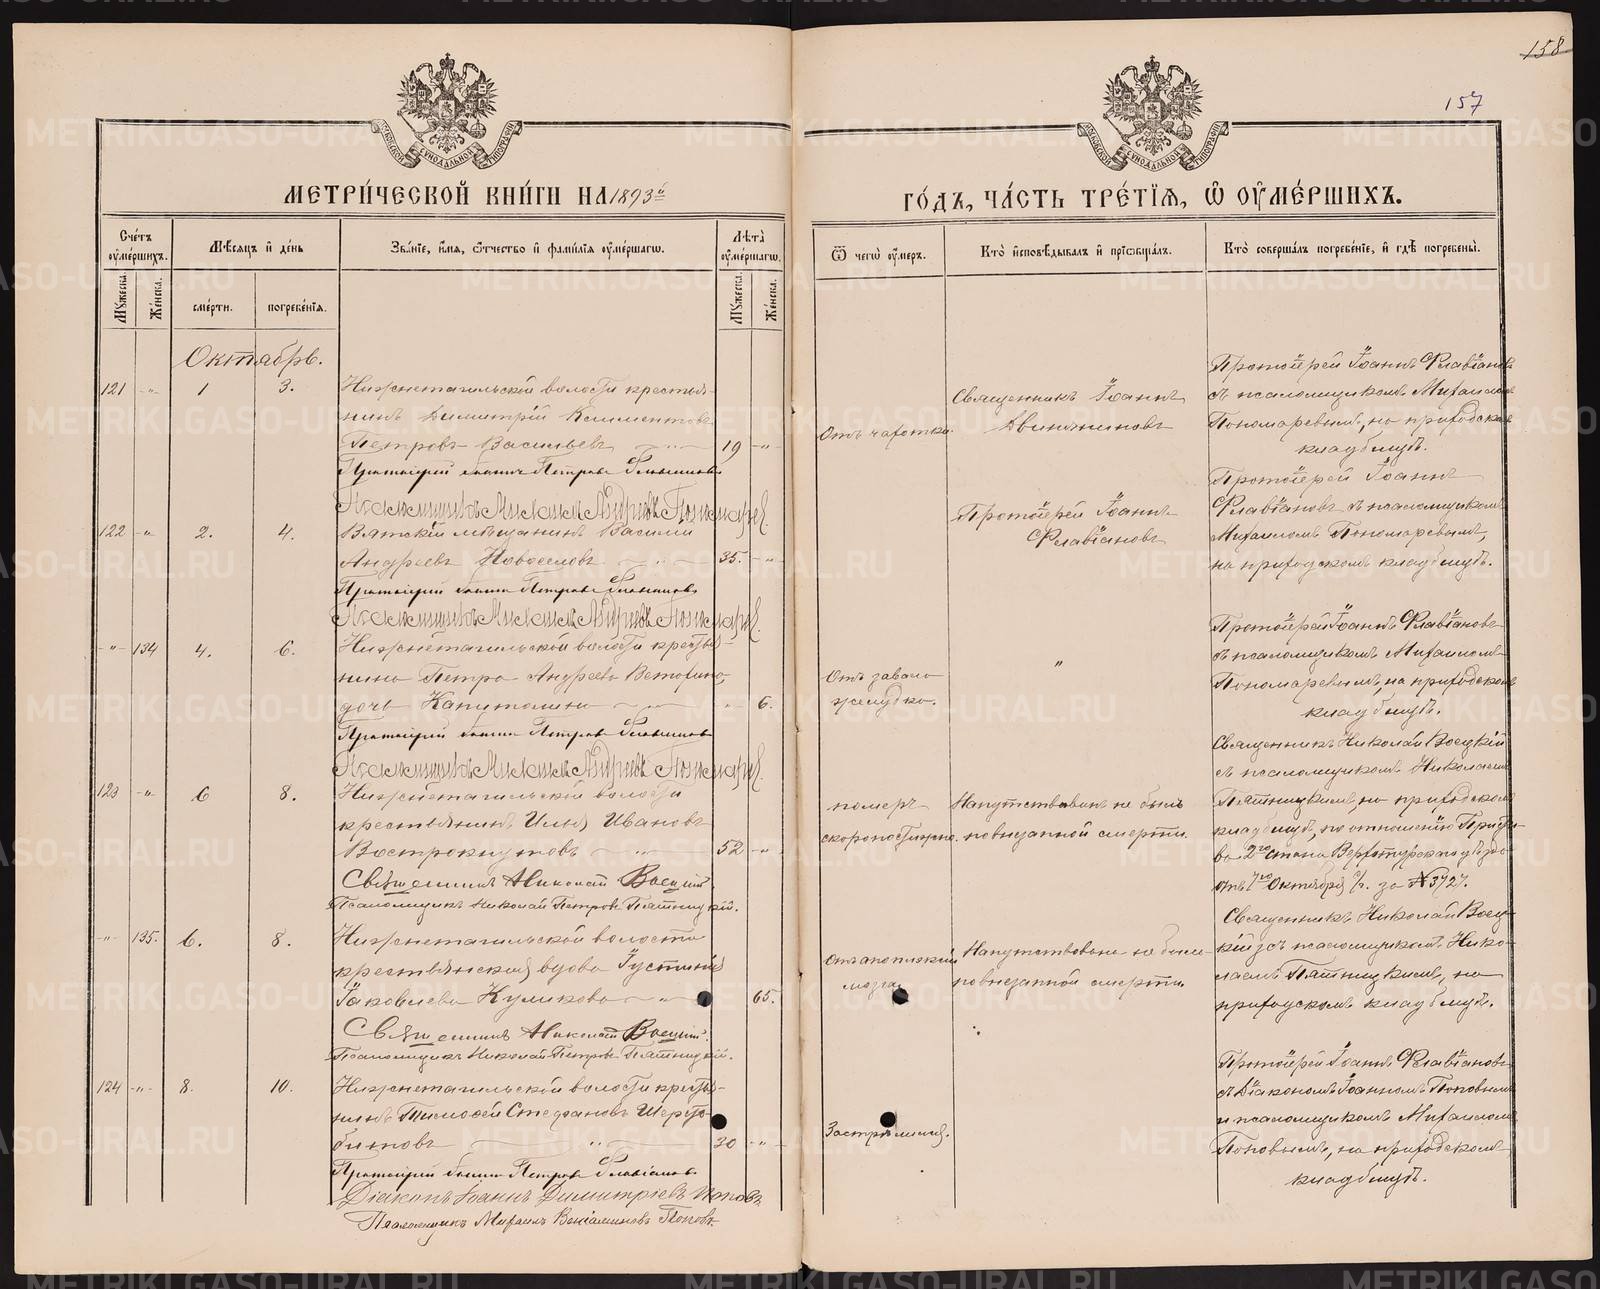 158
157
МЕТРИ́ЧЕСКОЙ КНИ́ГИ НА 1893й
ГО́ДЪ, ЧА́СТЬ ТРЕ́ТІЯ, Ѡ҆ ОУ҆МЕ́РШИХЪ.
Сче́тъ оу҆ме́ршихъ.
Мѣ́сяцъ и҆ де́нь
Зва́нїе, и҆́мя, ѻ҆́тчество и҆ фами́лїя оу҆ме́ршагѡ.
Лѣ́та̀ оу҆ме́ршагѡ.
Ѿ чегѡ̀ оу҆́меръ.
Кто̀ и҆сповѣ́дывалъ и҆ прїѡбща́лъ.
Кто̀ соверша́лъ погребе́нїе, и҆ гдѣ̀ погребены̀.
Мꙋ́жеска.
Же́нска.
сме́рти.
погребе́нїя.
Мꙋ́жеска.
Же́нска.
Октябрь.
121 -"- 1 3.
Нижнетагильской волости крестья-
нинъ Димитрій Климентовъ
Петровъ Васильевъ 19 -"-
Протоіерей Іоаннъ Петровъ Флавіановъ
Псаломщикъ Михаилъ Андреевъ Пономарев.
Отъ чахотки.
Священникъ Іоаннъ
Двиняниновъ
Протоіерей Іоаннъ Флавіановъ
съ псаломщикомъ Михаиломъ
Пономаревымъ, на приходскомъ
кладбищѣ.
122 -"- 2. 4.
Вятскій мѣщанинъ Василій
Андреевъ Новоселовъ 35. -"-
Протоіерей Іоаннъ Петровъ Флавіановъ
Псаломщикъ Михаилъ Андреевъ Пономарев.
Протоіерей Іоаннъ
Флавіановъ
Протоіерей Іоаннъ
Флавіановъ съ псаломщикомъ
Михаиломъ Пономаревымъ,
на приходскомъ кладбищѣ.
-"- 134 4. 6.
Нижнетагильской волости крестья-
нина Петра Андреева
дочь Капитолина -"- 6.
Протоіерей Іоаннъ Петровъ Флавіановъ
Псаломщикъ Михаилъ Андреевъ Пономарев.
Отъ завала
желудка.
"
Протоіерей Іоаннъ Флавіановъ
съ псаломщикомъ Михаиломъ
Пономаревымъ, на приходскомъ
кладбищѣ.
123 -"- 6 8.
Нижнетагильской волости
крестьянинъ Илья Ивановъ
Вострокнутовъ 52 -"-
Священникъ Николай Воецкій.
Псаломщикъ Николай Петровъ Пятницкій.
померъ
скоропостижно.
Напутствованъ не былъ
по внезапной смерти.
Священникъ Николай Воецкій
съ псаломщикомъ Николаемъ
Пятницкимъ, на приходскомъ
кладбищѣ, по отношенію Приста-
ва 2го стана Верхотурскаго уѣзда
отъ 7го Октября с/г. за № 3727.
-"- 135. 6. 8.
Нижнетагильской волости
крестьянская вдова Іустинія
Іаковлева Куликова -"- 65.
Священникъ Николай Воецкій.
Псаломщикъ Николай Петровъ Пятницкій.
Отъ апоплексіи
мозга
Напутствована не была
по внезапной смерти.
Священникъ Николай Воец-
кій съ псаломщикомъ Нико-
лаемъ Пятницкимъ, на
приходскомъ кладбищѣ.
124 -"- 8. 10.
Нижнетагильской волости крестья-
нинъ Тимофей Стефановъ Шерсто-
битовъ 30 -"-
Протоіерей Іоаннъ Петровъ Флавіановъ
Діаконъ Іоаннъ Димитріевъ Поповъ
Псаломщикъ Михаилъ Веніаминовъ Поповъ
Застрѣлился.
Протоіерей Іоаннъ Флавіановъ
съ Діакономъ Іоанномъ Поповымъ
и псаломщикомъ Михаиломъ
Поповымъ, на приходскомъ
кладбищѣ.
METRIKI.GASO-URAL.RU